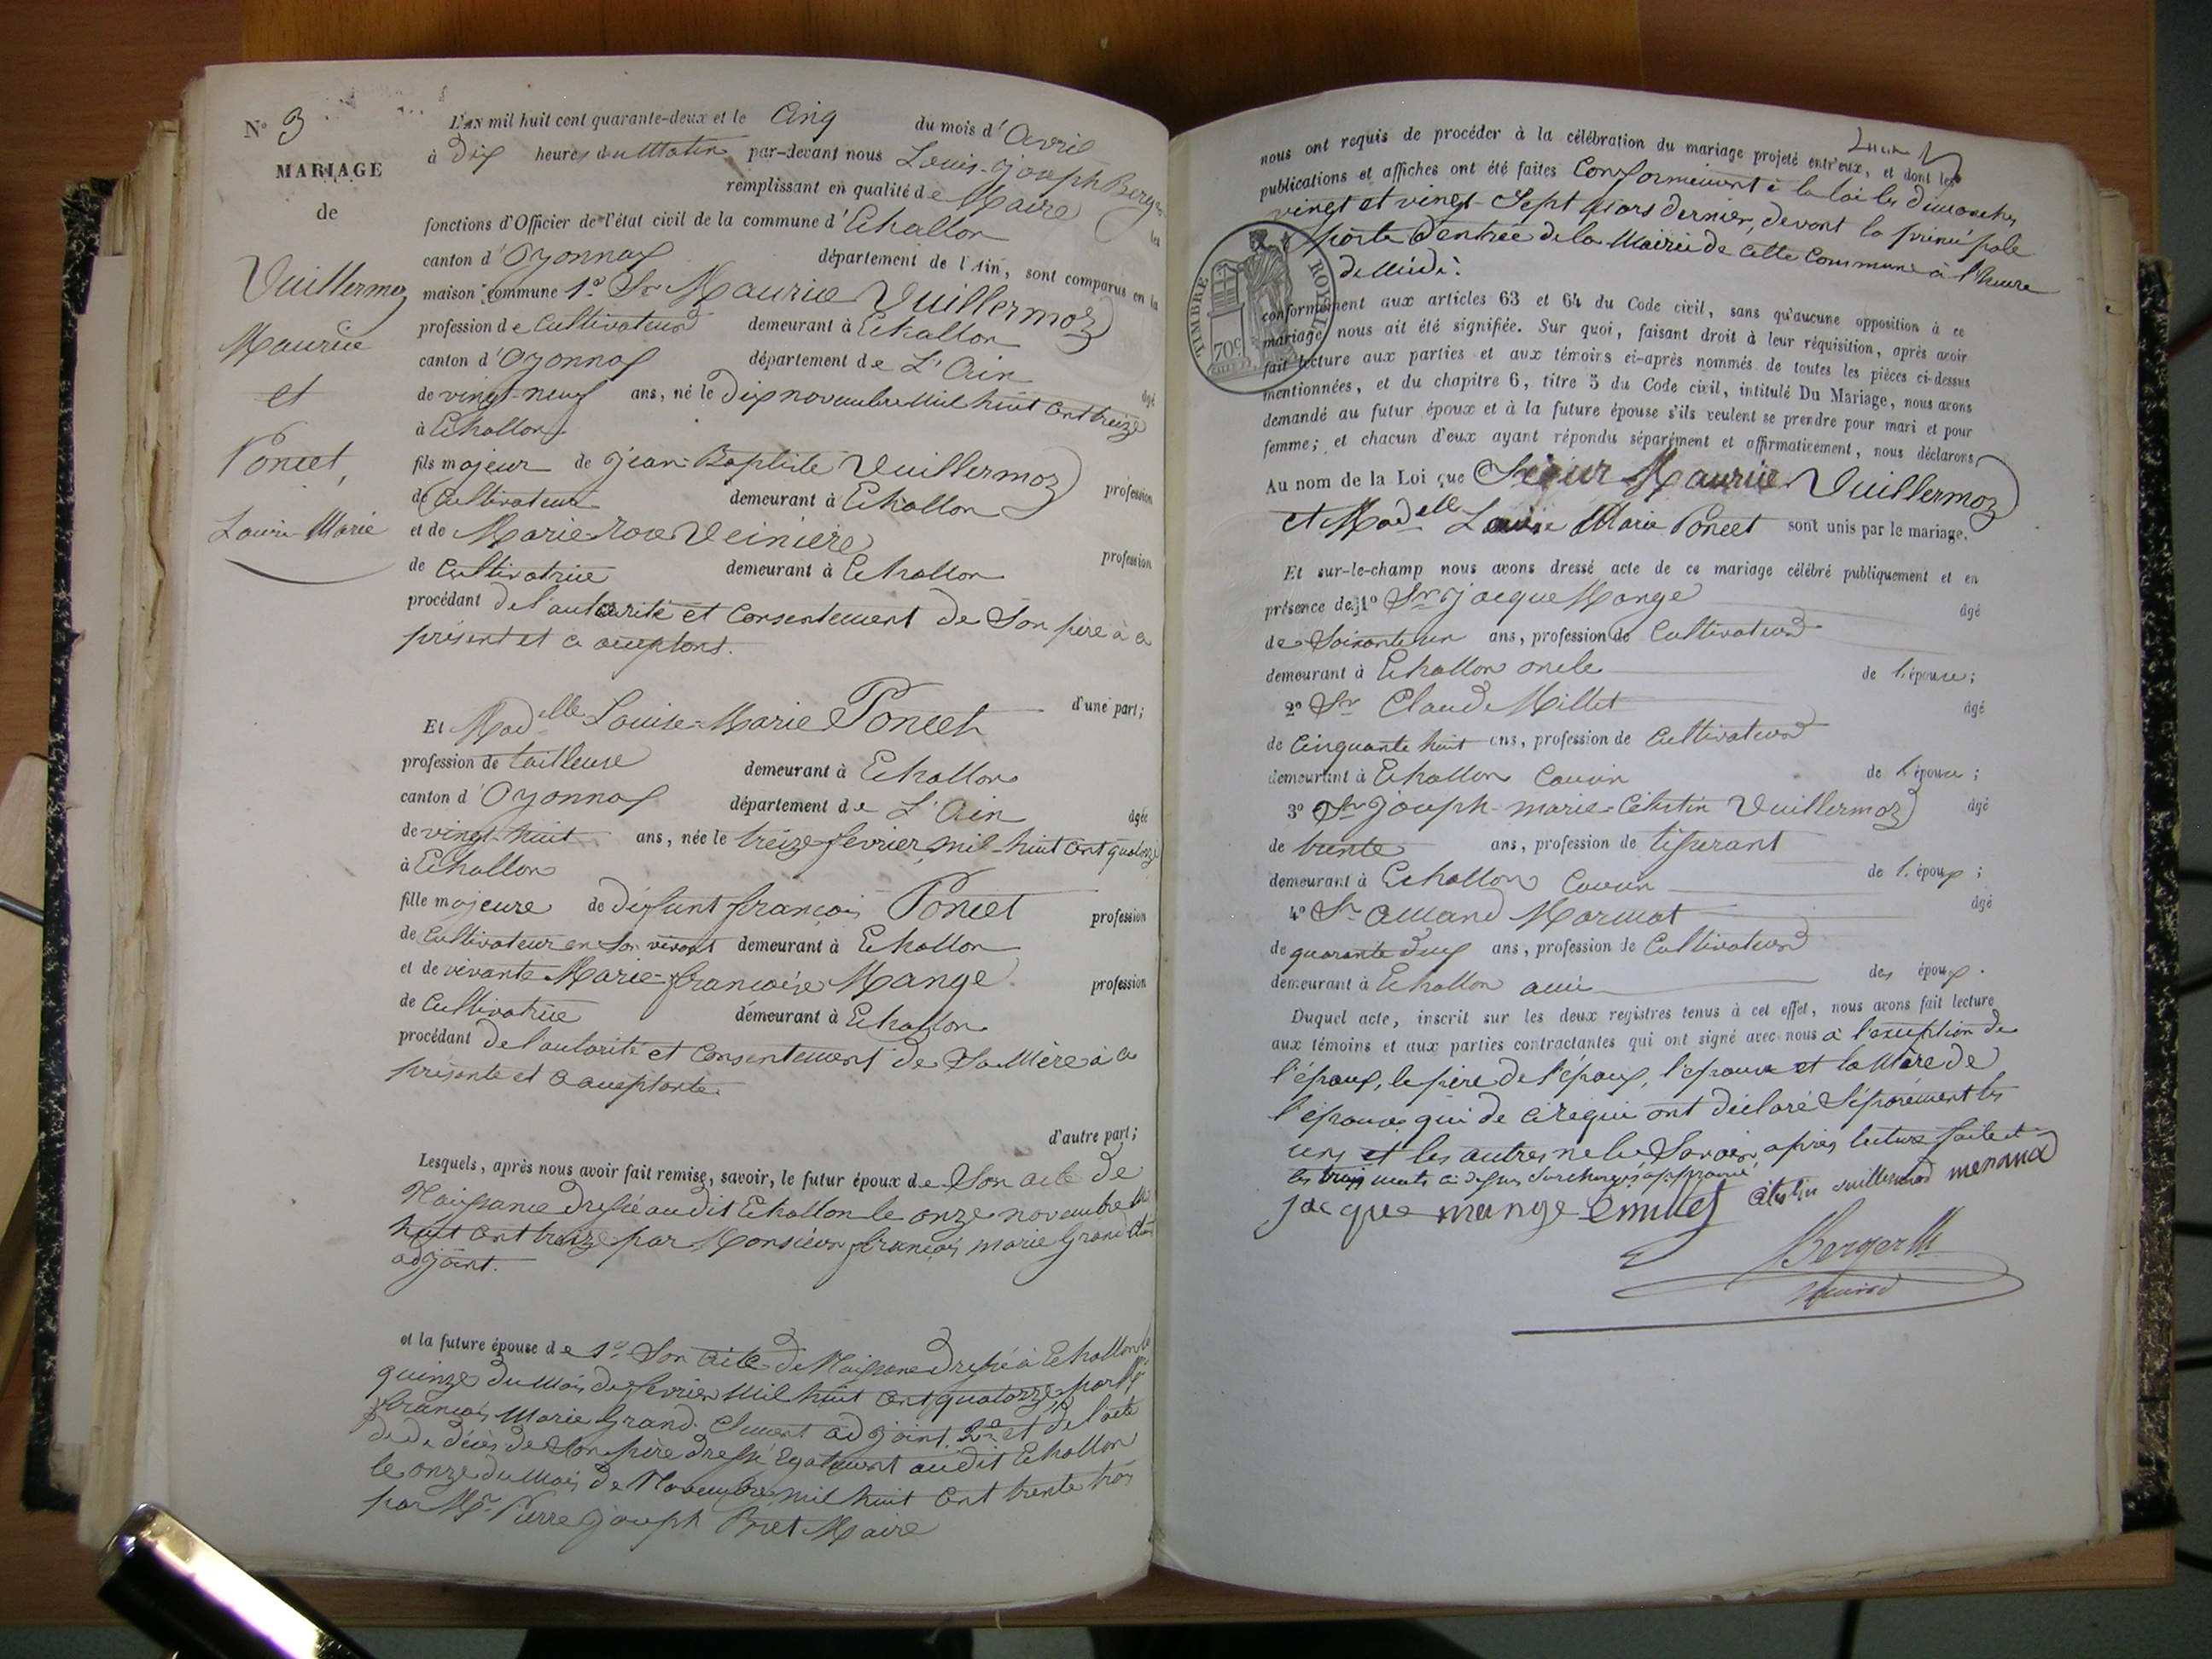 N° 3
MARIAGE
de
Vuillermoz
Maurice
et
Poncet,
Louise Marie
L'AN mil huit cent quarante-deux et le Cinq du mois d'Avril
à dix heures du Matin par-devant nous Louis-joseph Berger
remplissant en qualité de Maire les
fonctions d'Officier de l'état civil de la commune d'Echallon
canton d'Oyonnax département de l'Ain, sont comparus en la
maison commune 1° Sr Maurice Vuillermoz
profession de Cultivateur demeurant à Echallon
canton d'Oyonnax département de L'Ain
âgé
de vingt-neuf ans, né le dix novembre mil huit cent treize
à Echallon.
fils majeur de jean-Baptiste Vuillermoz profession
de Cultivateur demeurant à Echallon
et de Marie rose profession
de Cultivatrice demeurant à Echallon
procédant de l'autorité et Consentement de Son père à ce
présent et ce acceptant.
d'une part;
Et Madelle Louise-Marie Poncet
profession de tailleuse demeurant à Echallon
canton d'Oyonnax département de L'Ain âgée
de vingt-huit ans, née le treize fevrier mil-huit cent quatorze
à Echallon
fille majeure de défunt françois Poncet profession
de Cultivateur en Son vivant demeurant à Echallon
et de vivante Marie-françoise Mange profession
de Cultivatrice demeurant à Echallon
procédant de l'autorité et Consentement de Sa Mère à ce
présente et ce acceptante.
d'autre part;
Lesquels, après nous avoir fait remise, savoir, le futur époux de Son acte de
Naissance dressé audit Echallon le onze novembre Mil
huit cent treize par Monsieur françois marie Grand
adjoint.
et la future épouse de 1° Son acte de Naissance dressé à Echallon le
quinze du Mois de fevrier Mil huit cent quatorze par Mr
françois Marie Grand Clement adjoint. 2° et de l'acte
de de décès de Son père dressé Egalement audit Echallon
le onze du Mois de Novembre mil huit cent trente trois
par Mr Pierre joseph Bret Maire
nous ont requis de procéder à la célébration du mariage projeté entr'eux, et dont les
publications et affiches ont été faites Conformément à la loi les dimanches
vingt et vingt-Sept Mars dernier, devant la principale
porte d'entrée de la Mairie de cette Commune à l'heure
de Midi.
TIMBRE ROYAL
70c
conformément aux articles 63 et 64 du Code civil, sans qu'aucune opposition à ce
mariage nous ait été signifiée. Sur quoi, faisant droit à leur réquisition, après avoir
fait lecture aux parties et aux témoins ci-après nommés de toutes les pièces ci-dessus
mentionnées, et du chapitre 6, titre 5 du Code civil, intitulé Du Mariage, nous avons
demandé au futur époux et à la future épouse s'ils veulent se prendre pour mari et pour
femme; et chacun d'eux ayant répondu séparément et affirmativement, nous déclarons,
Au nom de la Loi que Sieur Maurice Vuillermoz
et Madelle Louise Marie Poncet sont unis par le mariage.
Et sur-le-champ nous avons dressé acte de ce mariage célébré publiquement et en
présence de: 1° Sr jacque Mange âgé
de Soixante un ans, profession de Cultivateur
demeurant à Echallon oncle de l'épouse;
2° Sr Claude Millet âgé
de Cinquante huit ans, profession de Cultivateur
demeurant à Echallon Cousin de l'épouse;
3° Sr joseph-marie-Célestin Vuillermoz âgé
de trente ans, profession de tisserant
demeurant à Echallon Cousin de l'époux;
4° Sr amand Mermet âgé
de quarante deux ans, profession de Cultivateur
demeurant à Echallon ami des époux.
Duquel acte, inscrit sur les deux registres tenus à cet effet, nous avons fait lecture
aux témoins et aux parties contractantes qui ont signé avec nous à l'exception de
l'époux, le père de l'époux, l'épouse et la Mère de
l'épouse, qui de ce requis ont déclaré Séparément les
uns et les autres ne le Savoir après lecture faite et
les trois mots ci dessus Surchargés approuvé
jacque mange Cmillet célestin vuillermoz
Berger